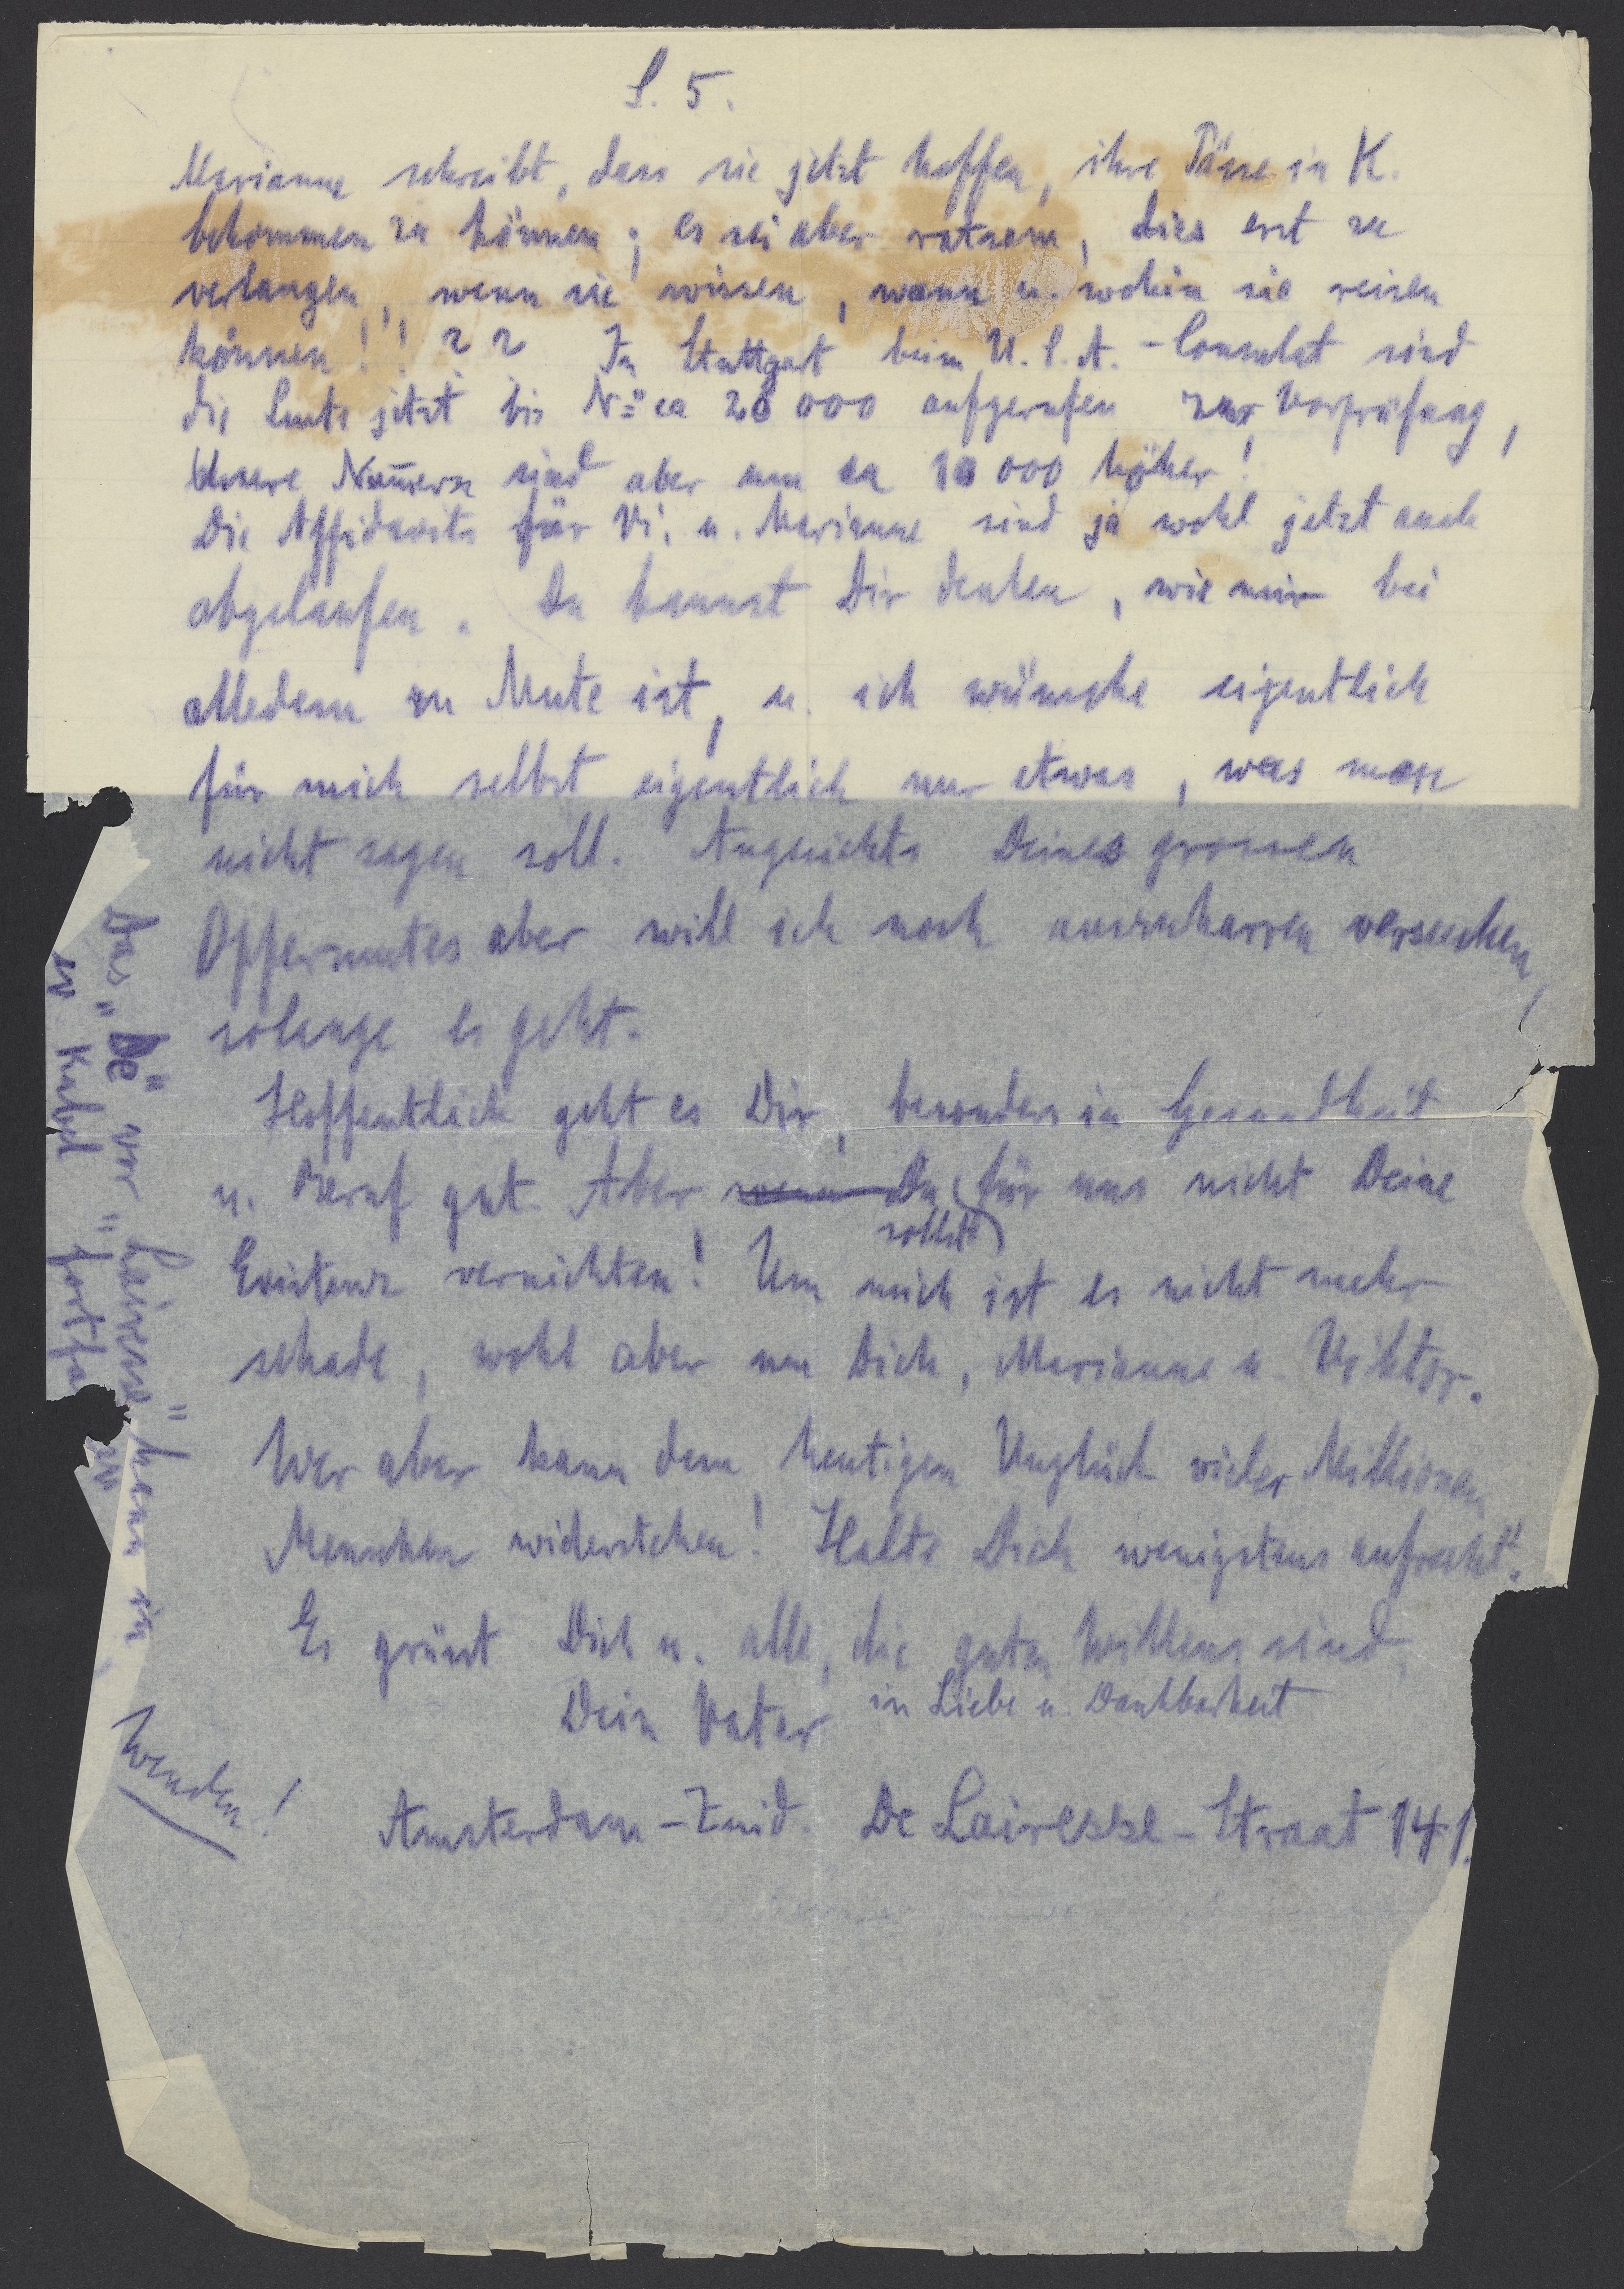 S. 5.
Marianne schreibt, dass sie jetzt hoffen, ihre Pässe in K.
bekommen zu können; es sei aber ratsam, dies erst zu
verlangen, wenn sie wissen, wann u. wohin sie reisen
können!! ?? In Stuttgart beim U.S.A.-Consulat sind
die Leute jetzt bis No ca 20 000 aufgerufen zur Vorprüfung,
Unsere Num̅ern sind aber um ca 10 000 höher!
Die Affidavits für Vi. u. Marianne sind ja wohl jetzt auch
abgelaufen. Du kannst Dir denken, wie mir bei
alledem zu Mute ist, u. ich wünsche eigentlich
für mich selbst eigentlich nur etwas, was man
nicht sagen soll. Angesichts Deines grossen
Opfermutes aber will ich noch auszuharren versuchen,
solange es geht.
Hoffentlich geht es Dir, besonders in Gesundheit
u. Beruf gut. Aber wenn Du für uns nicht Deine
sollst
Existenz vernichten! Um mich ist es nicht mehr
schade, wohl aber um Dich, Marianne u. Viktor.
Wer aber kann dem heutigen Unglück vieler Millionen
Menschen widerstehen! Halte Dich wenigstens aufrecht!
Es grüsst Dich u. alle, die guten Willens sind,
Dein Vater in Liebe u. Dankbarkeit
Wenden!
Amsterdam-Zuid. De Lairesse-Straat 141.
Das "De" vor "Lairesse" kann in
Kabel fortfa